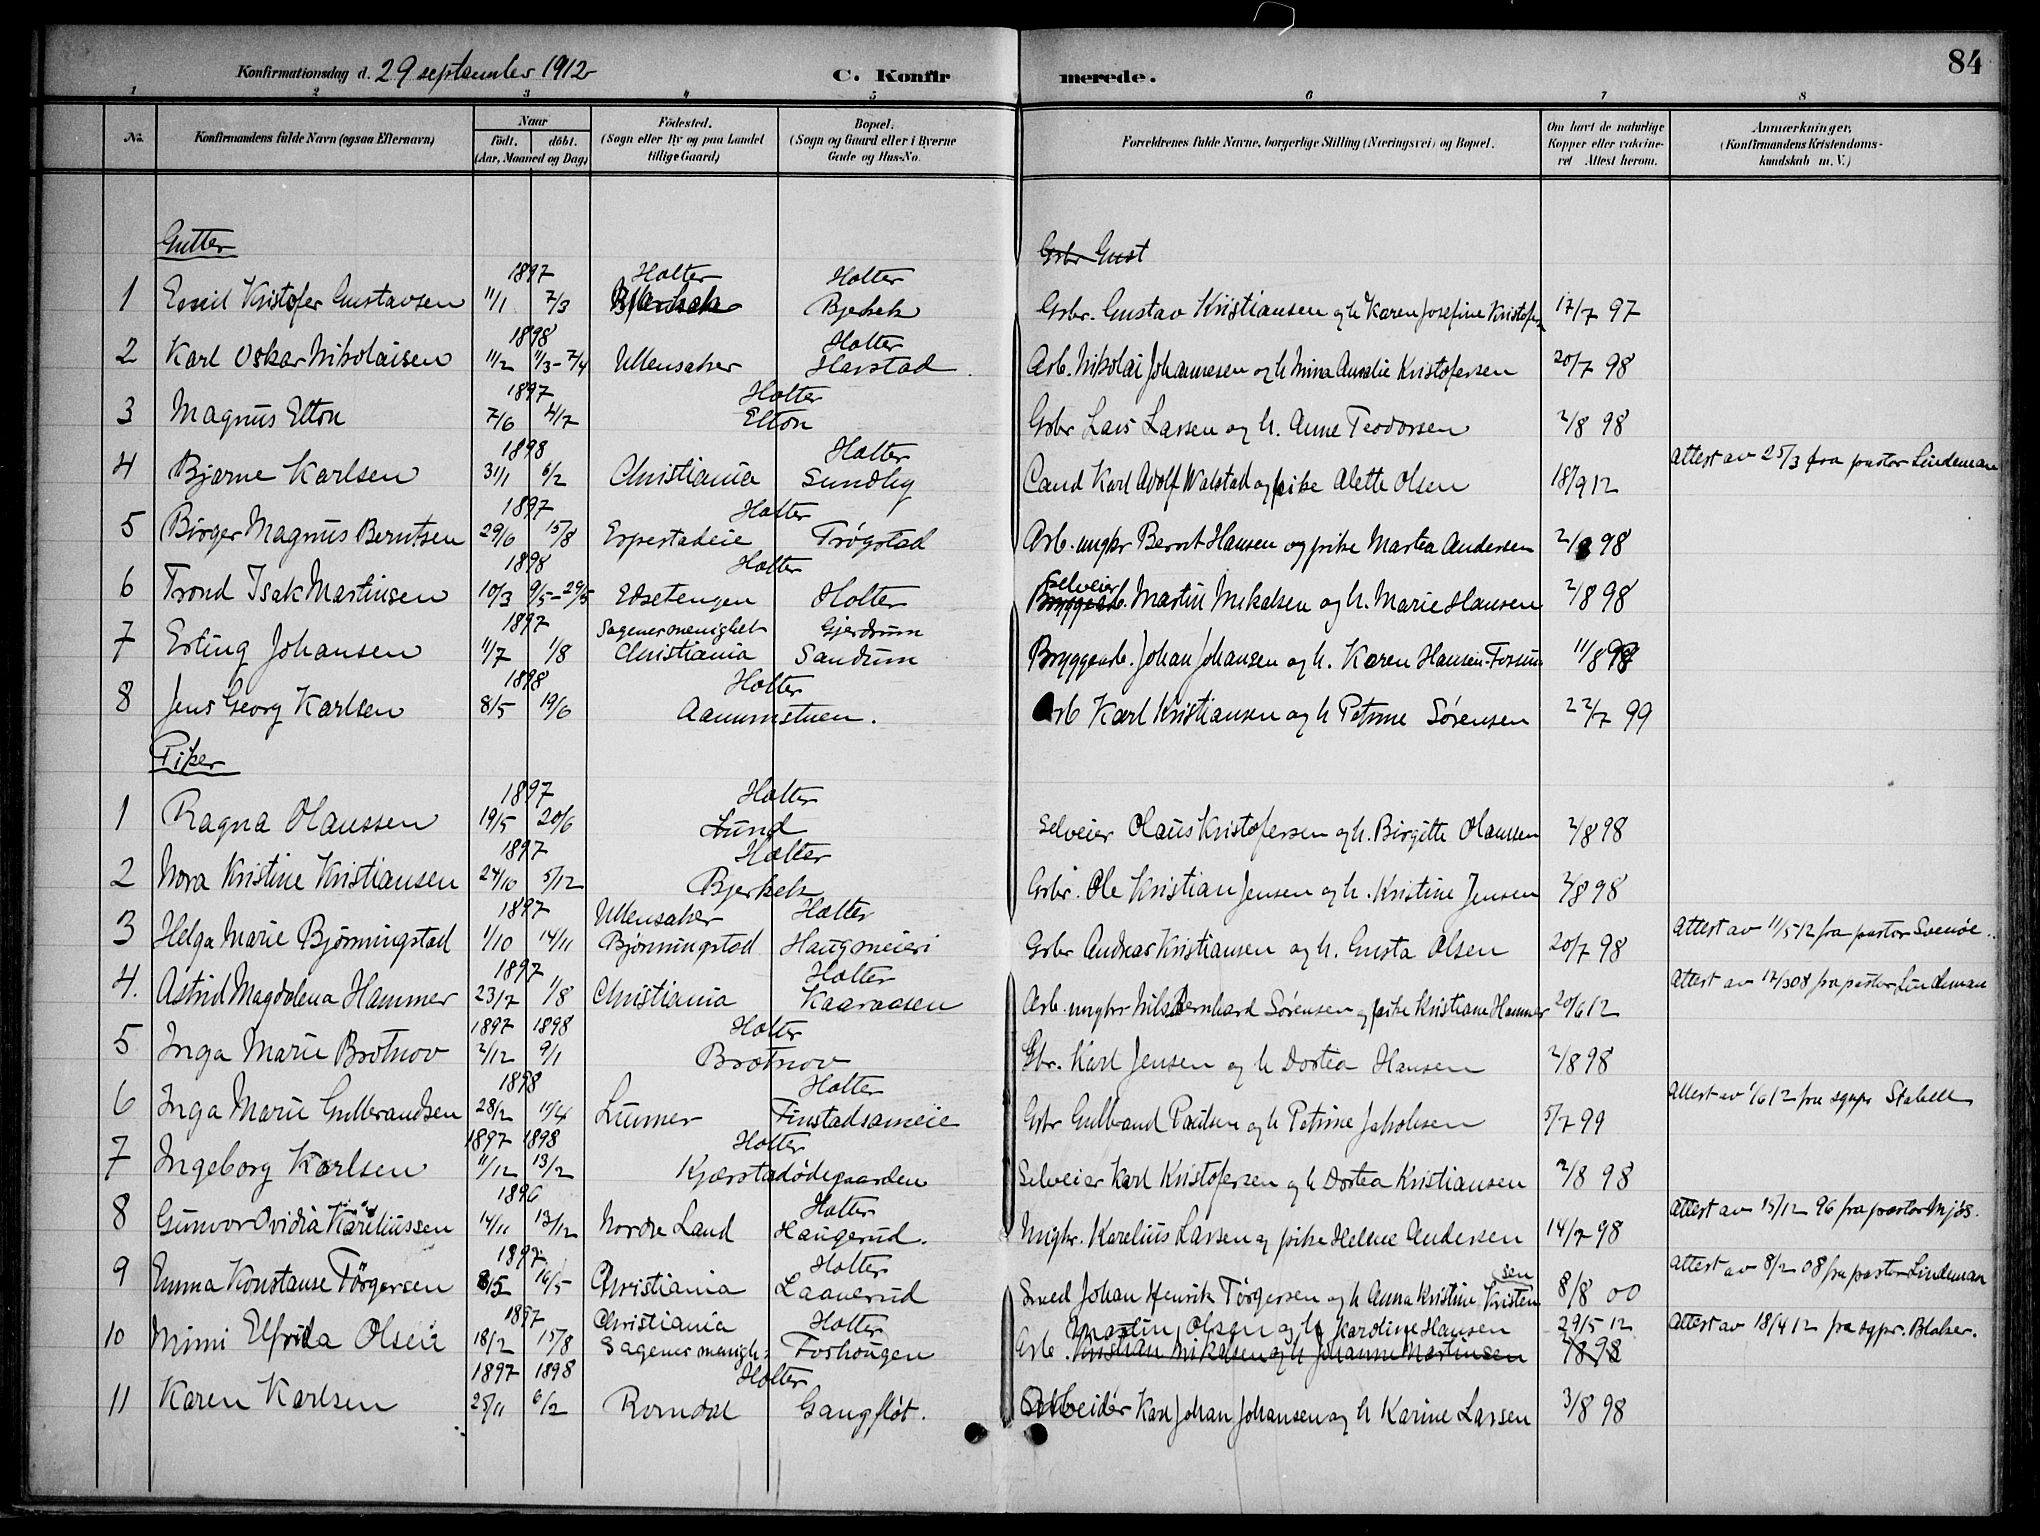 Konfirmationsdag d. 29 september 1912
C. Konfirmerede.
84
1 2 3 4 5 6 7 8
No.
Konfirmandens fulde Navn (ogsaa Efternavn)
Naar
födt. döbt.
(Aar, Maaned og Dag)
Födested.
(Sogn eller By og paa Landet tillige Gaard)
Bopæl.
(Sogn og Gaard eller i Byerne Gade og Hus-No.
Forældrenes fulde Navne, borgerlige Stilling (Næringsvei) og Bopæl.
Om havt de naturlige Kopper eller vaccineret Attest herom.
Anmærkninger,
(Konfirmandens Kristendomskundskab m. V.)
Gutter
Gsbr Gust
1897 Holter Holter
1 Emil Kristofer Gustavsen 11/1 7/3 Bjerkek Bjekek Gsbr. Gustav Kristiansen og h Karen Josefine Kristofers 17/7 97
1898 Holter
2 Karl Oskar Nikolaisen 11/2 11/3-7/4 Ullensaker Harstad Arb. Nikolai Johannesen og h Mina Amalie Kristofersen 20/7 98
1897 Holter
3 Magnus Elton 7/6 4/7 Elton Gsbr Lars Larsen og h. Anne Teodorsen 2/8 98
1898 Holter
4 Bjarne Karlsen 31/1 6/2 Christiania Sundby Cand Karl Adolf Walstad og pike Alette Olsen 18/9 12 Attest av 25/3 fra pastor Lindeman
1897 Holter
5 Birger Magnus Berntsen 29/6 15/8 Erpestadeie Trøgstad Arb. ungkr Bernt Hansen og pike Martea Andersen 2/8 98
1898 Holter
6 Trond Isak Martinsen 10/3 9/5-29/5 Elsetengen Holter Selveier Bryggearb. Martin Mikalsen og h. Marie Hansen 2/8 98
1897 Sagenes menighet Gjerdrum
7 Erling Johansen 11/7 1/8 Christiania Sandum Bryggearb. Johan Johansen og h. Karen Hansen-Forsun 11/8 98
1898 Holter
8 Jens Georg Karlsen 8/5 19/6 Aamumstuen. Arb Karl Kristiansen og h Petrine Sørensen 22/7 99
Piker
1897 Holter
1 Ragna Olaussen 19/5 20/6 Lund Selveier Olaus Kristofersen og h. Birgitte Olaussen 2/8 98
1897 Holter
2 Nora Kristine Kristiansen 24/10 5/12 Bjerkek Gsbr. Ole Kristian Jensen og h. Kristine Jensen 2/8 98
1897 Ullensaker Holter
3 Helga Marie Bjørningstad 1/10 14/11 Bjørningstad Haugmeieri Gsbr Andreas Kristiansen og h. Gusta Olsen 20/7 98 Attest av 11/5 12 fra pastor Svenøe.
1897 Holter
4. Astrid Magdalena Hammer 23/7 1/8 Christiania Kaaraasen Arb. ungkr Nils Bernhard Sørensen og pike Kristiane Hammer 20/6 12 Attest av 17/3 08 fra pastor Lindeman
1897 1898 Holter
5 Inga Marie Brotnov 2/12 9/1 Brotnov Gbr. Karl Jensen og h Dortea Hansen 2/8 98
1898 Holter
6 Inga Marie Gulbrandsen 28/2 11/4 Lunner Finstadsameie Gsbr Gulbrand Paulsen og h Petrine Jakobsen 5/7 99 Attest av 1/6 12 fra sgpr Stabell
1897 1898 Holter
7 Ingeborg Karlsen 11/12 13/2 Kjærstadødegaarden Selveier Karl Kristofersen og h Dortea Kristiansen 2/8 98
1896 Holter
8 Gunvor Ovidia Kareliussen 14/11 13/12 Nordre Land Haugerud. Ungkr. Karelius Larsen og pike Helene Andersen 14/7 98 Attest av 13/12 96 fra pastor Mjøs.
1897 Holter
9 Emma Konstanse Törgersen 8/5 16/5 Christiania Laanerud Smed Johan Henrik Törgersen og h Anna Kristine Kristensen 8/8 00 Attest av 8/2 08 fra pastor Lindeman
1897 Christiania Holter
10 Mimi Elfrida Olsen 18/2 15/8 Sagenes menigh: Foshougen Arb. Martin Olsen og h Karoline Hansen 29/5 12 Attest av 18/4 12 fra sgpr. Blaker.
Kristian Mikalsen og h Johanne Martinsen 2/8 98
1897 1898 Holter
11 Karen Karlsen 25/11 6/2 Romdal Gangfløt. Arbeider Karl Johan Johansen og h Karine Larsen 3/8 98